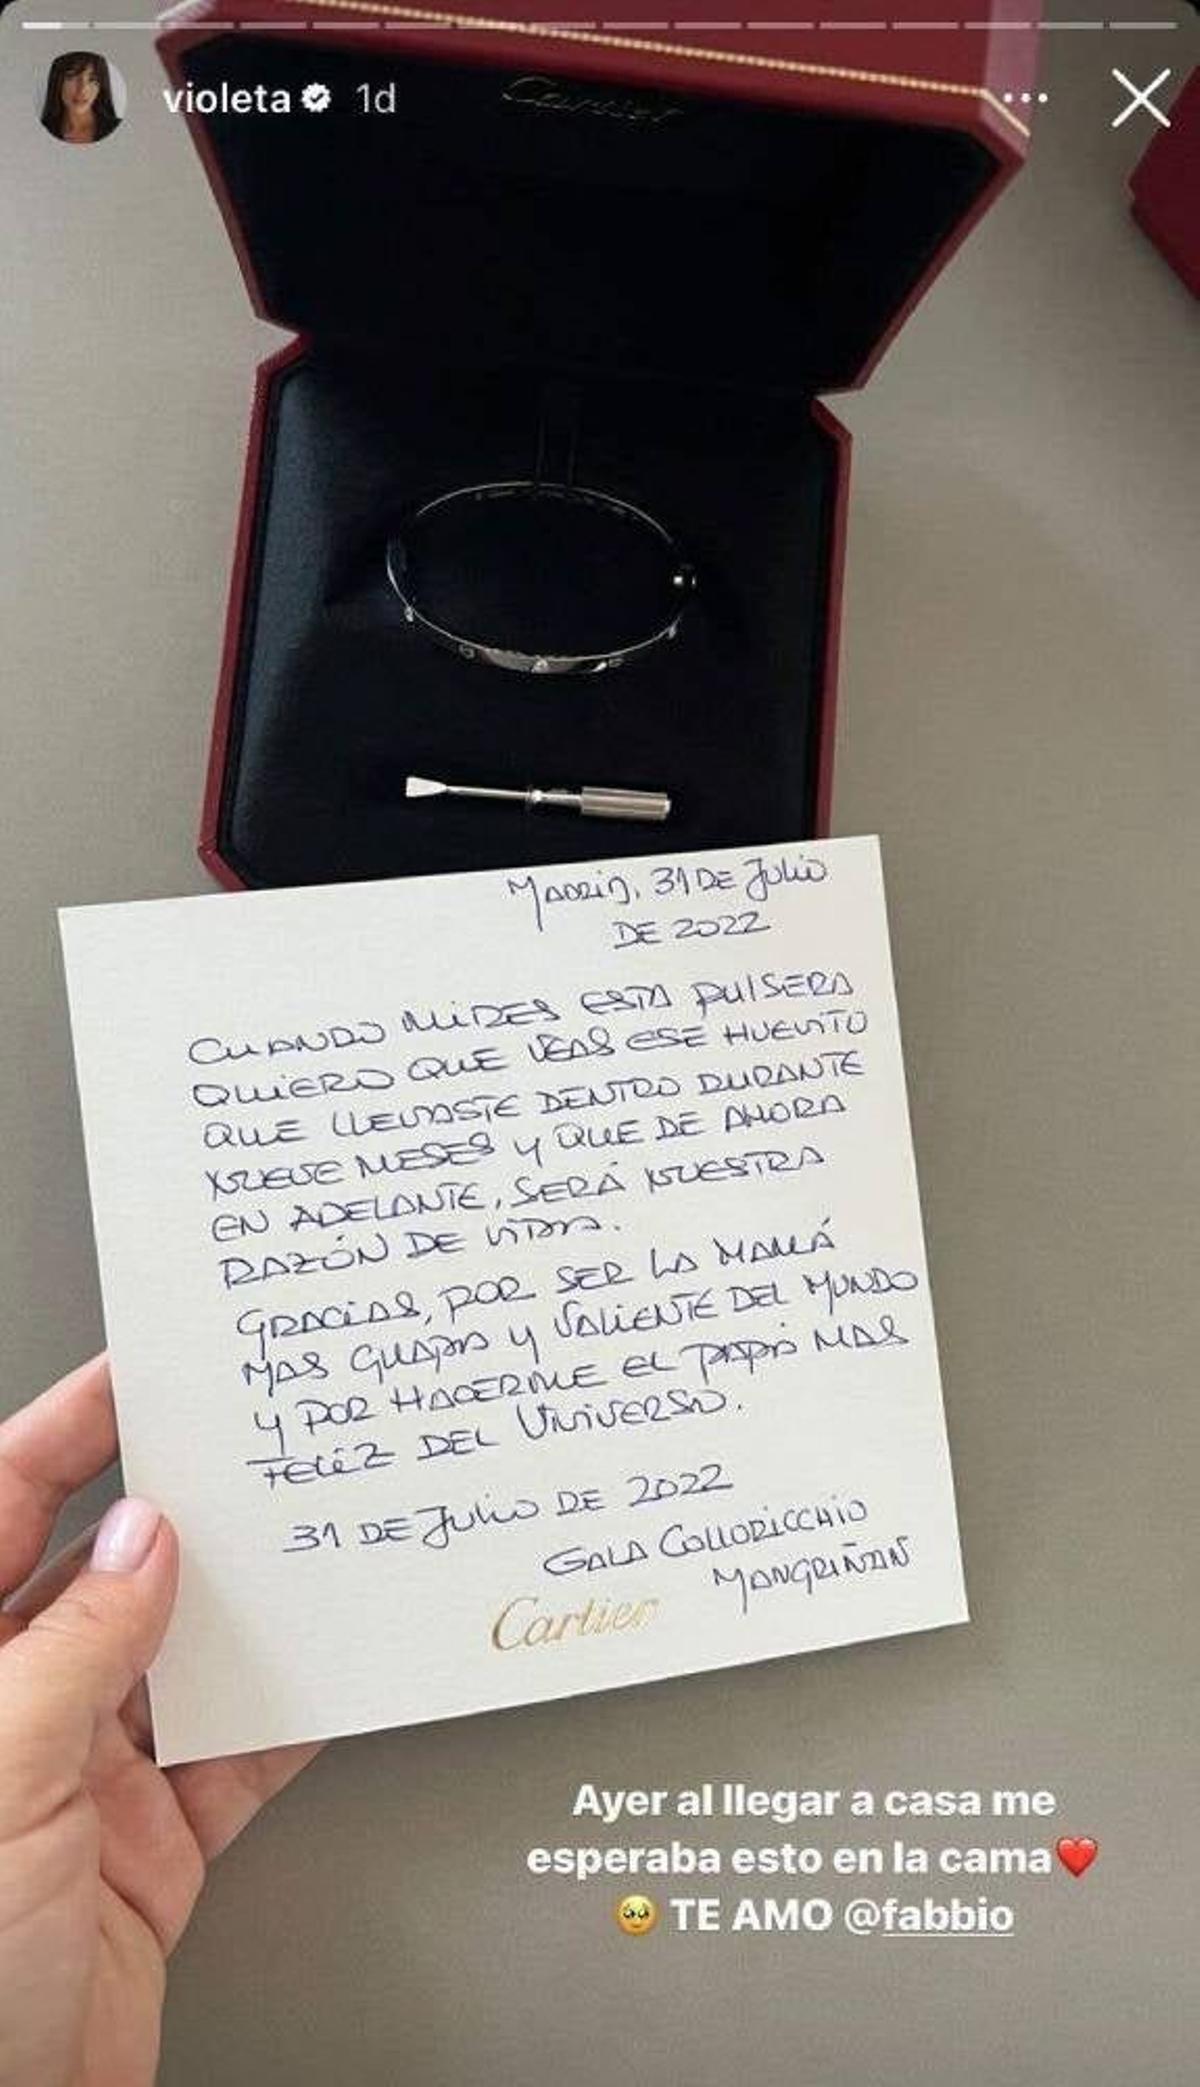 violeta 1d
Cartier
MADRID, 31 DE Julio
DE 2022
CUANDO MIRES ESTA PULSERA
QUIERO QUE VEAS ESE HUEVITO
QUE LLEVASTE DENTRO DURANTE
NUEVE MESES Y QUE DE AHORA
EN ADELANTE, SERÁ NUESTRA
RAZÓN DE VIDA.
GRACIAS, POR SER LA MAMÁ
MAS GUAPA Y VALIENTE DEL MUNDO
Y POR HACERME EL PAPÁ MAS
FELIZ DEL UNIVERSO.
31 DE Julio DE 2022
GALA COLLORICCHIO
MANGRIÑÁN
Cartier
Ayer al llegar a casa me
esperaba esto en la cama❤️
🥹 TE AMO @fabbio